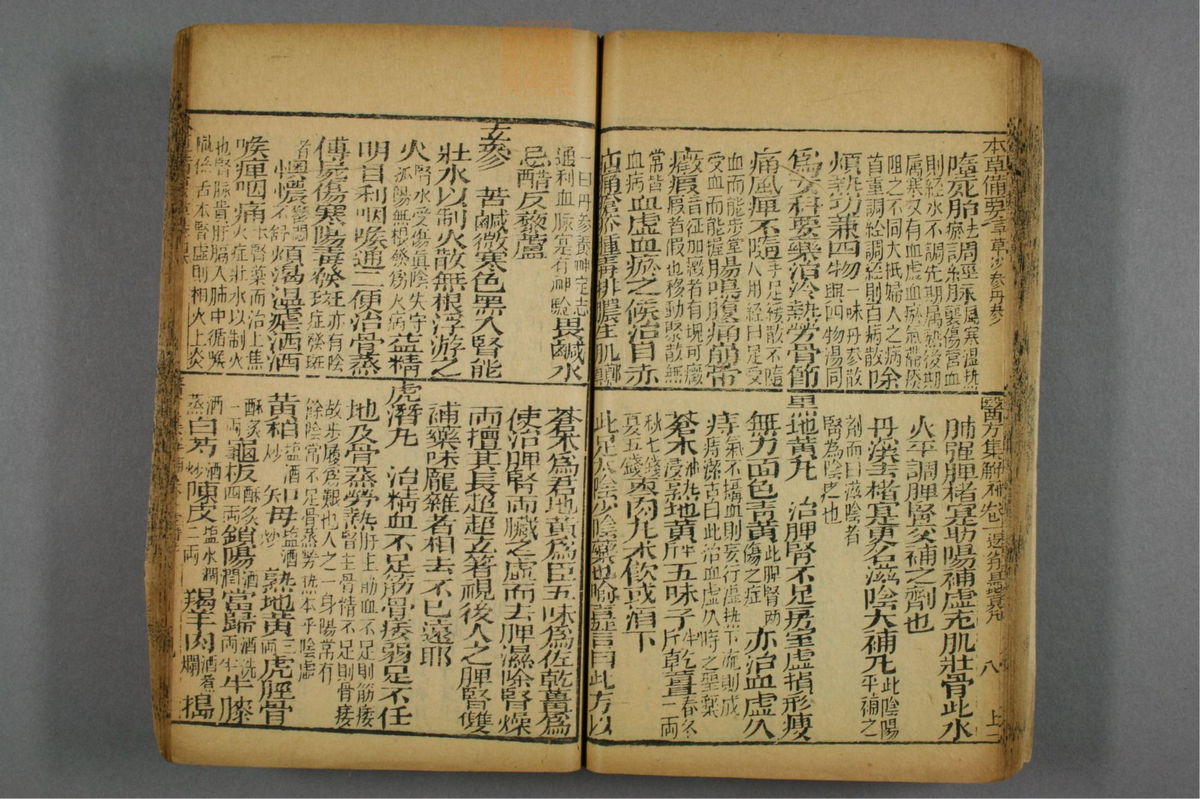 本草備要 草部 丹參
墮死胎 調經脉風寒濕熱
襲傷營血
則經水不調先期屬熱後期
屬寒又有血虛血瘀氣滯痰
阻之不同大抵婦人之病
首重調經經調則百病散 除
煩熱功兼四物 一味丹參散
與四物湯同
爲女科要藥治冷熱勞骨節
痛風痺不隨 手足緩散不隨
人用經曰足受
血而能步掌
受血而能握 腸鳴腹痛崩帶
癥瘕 音征加癥者有塊可癥
瘕者假也移動聚散無
常皆
血病 血虛血瘀之候治目赤
疝痛瘡疥腫毒排膿生肌鄭
醫方集解 補養 返本還黑地黃丸 八 上二
肺強脾楮實助陽補虛充肌壯骨此水
火平調脾腎交補之劑也
丹溪去楮實更名滋陰大補丸 此陰陽
平補之
劑而曰滋陰者
腎為陰臟也
黑地黃丸 治脾腎不足房室虛損形瘦
無力面色青黃 此脾腎兩
傷之症 亦治血虛久
痔 氣不攝血則妄行濕熱下流則成
痔潔古曰此治血虛久痔之聖藥
蒼朮 油浸 熟地黃 斤 五味子 斤 乾薑 春冬一兩
秋七錢
夏五錢 棗肉丸米飲或酒下
此足太陰少陰藥也喻嘉言曰此方以
一曰丹參養神定志
通利血脈實有神驗 畏鹹水
忌醋反藜蘆
玄參 苦鹹微寒色黑入腎能
壯水以制火散無根浮游之
火 腎水受傷眞陰失守
孤陽無根發爲火病 益精
明目利咽喉通二便治骨蒸
傳屍傷寒陽毒發斑 亦有陰
症發斑
者 懊憹 鬱悶
不舒 煩渴溫瘧洒洒
喉痺咽痛 本腎藥而治上焦
火症壯水以制火
也腎脉貫肝膈入肺中循喉
嚨係舌本腎虛則相火上炎
蒼朮爲君地黃爲臣五味爲佐乾薑爲
使治脾腎兩臟之虛而去脾濕除腎燥
兩擅其長超超立著視後人之脾腎雙
補藥味龐雜者相去不已遠耶
虎潛丸 治精血不足筋骨痿弱足不任
地及骨蒸勞熱 肝主筋血不足則筋痿
腎主骨精不足則骨痿
故步履爲艱也人之一身陽常有
餘陰常不足骨蒸勞熱本乎陰虛
黃柏 鹽酒
炒 知母 鹽酒
炒 熟地黃 三
兩 虎脛骨
酥炙
一兩 龜板 酥炙
四兩 鎖陽 酒
潤 當歸 酒洗
兩半 牛膝
酒
蒸 白芍 酒
炒 陳皮 鹽水潤
二兩 羯羊肉 酒煮
爛 搗